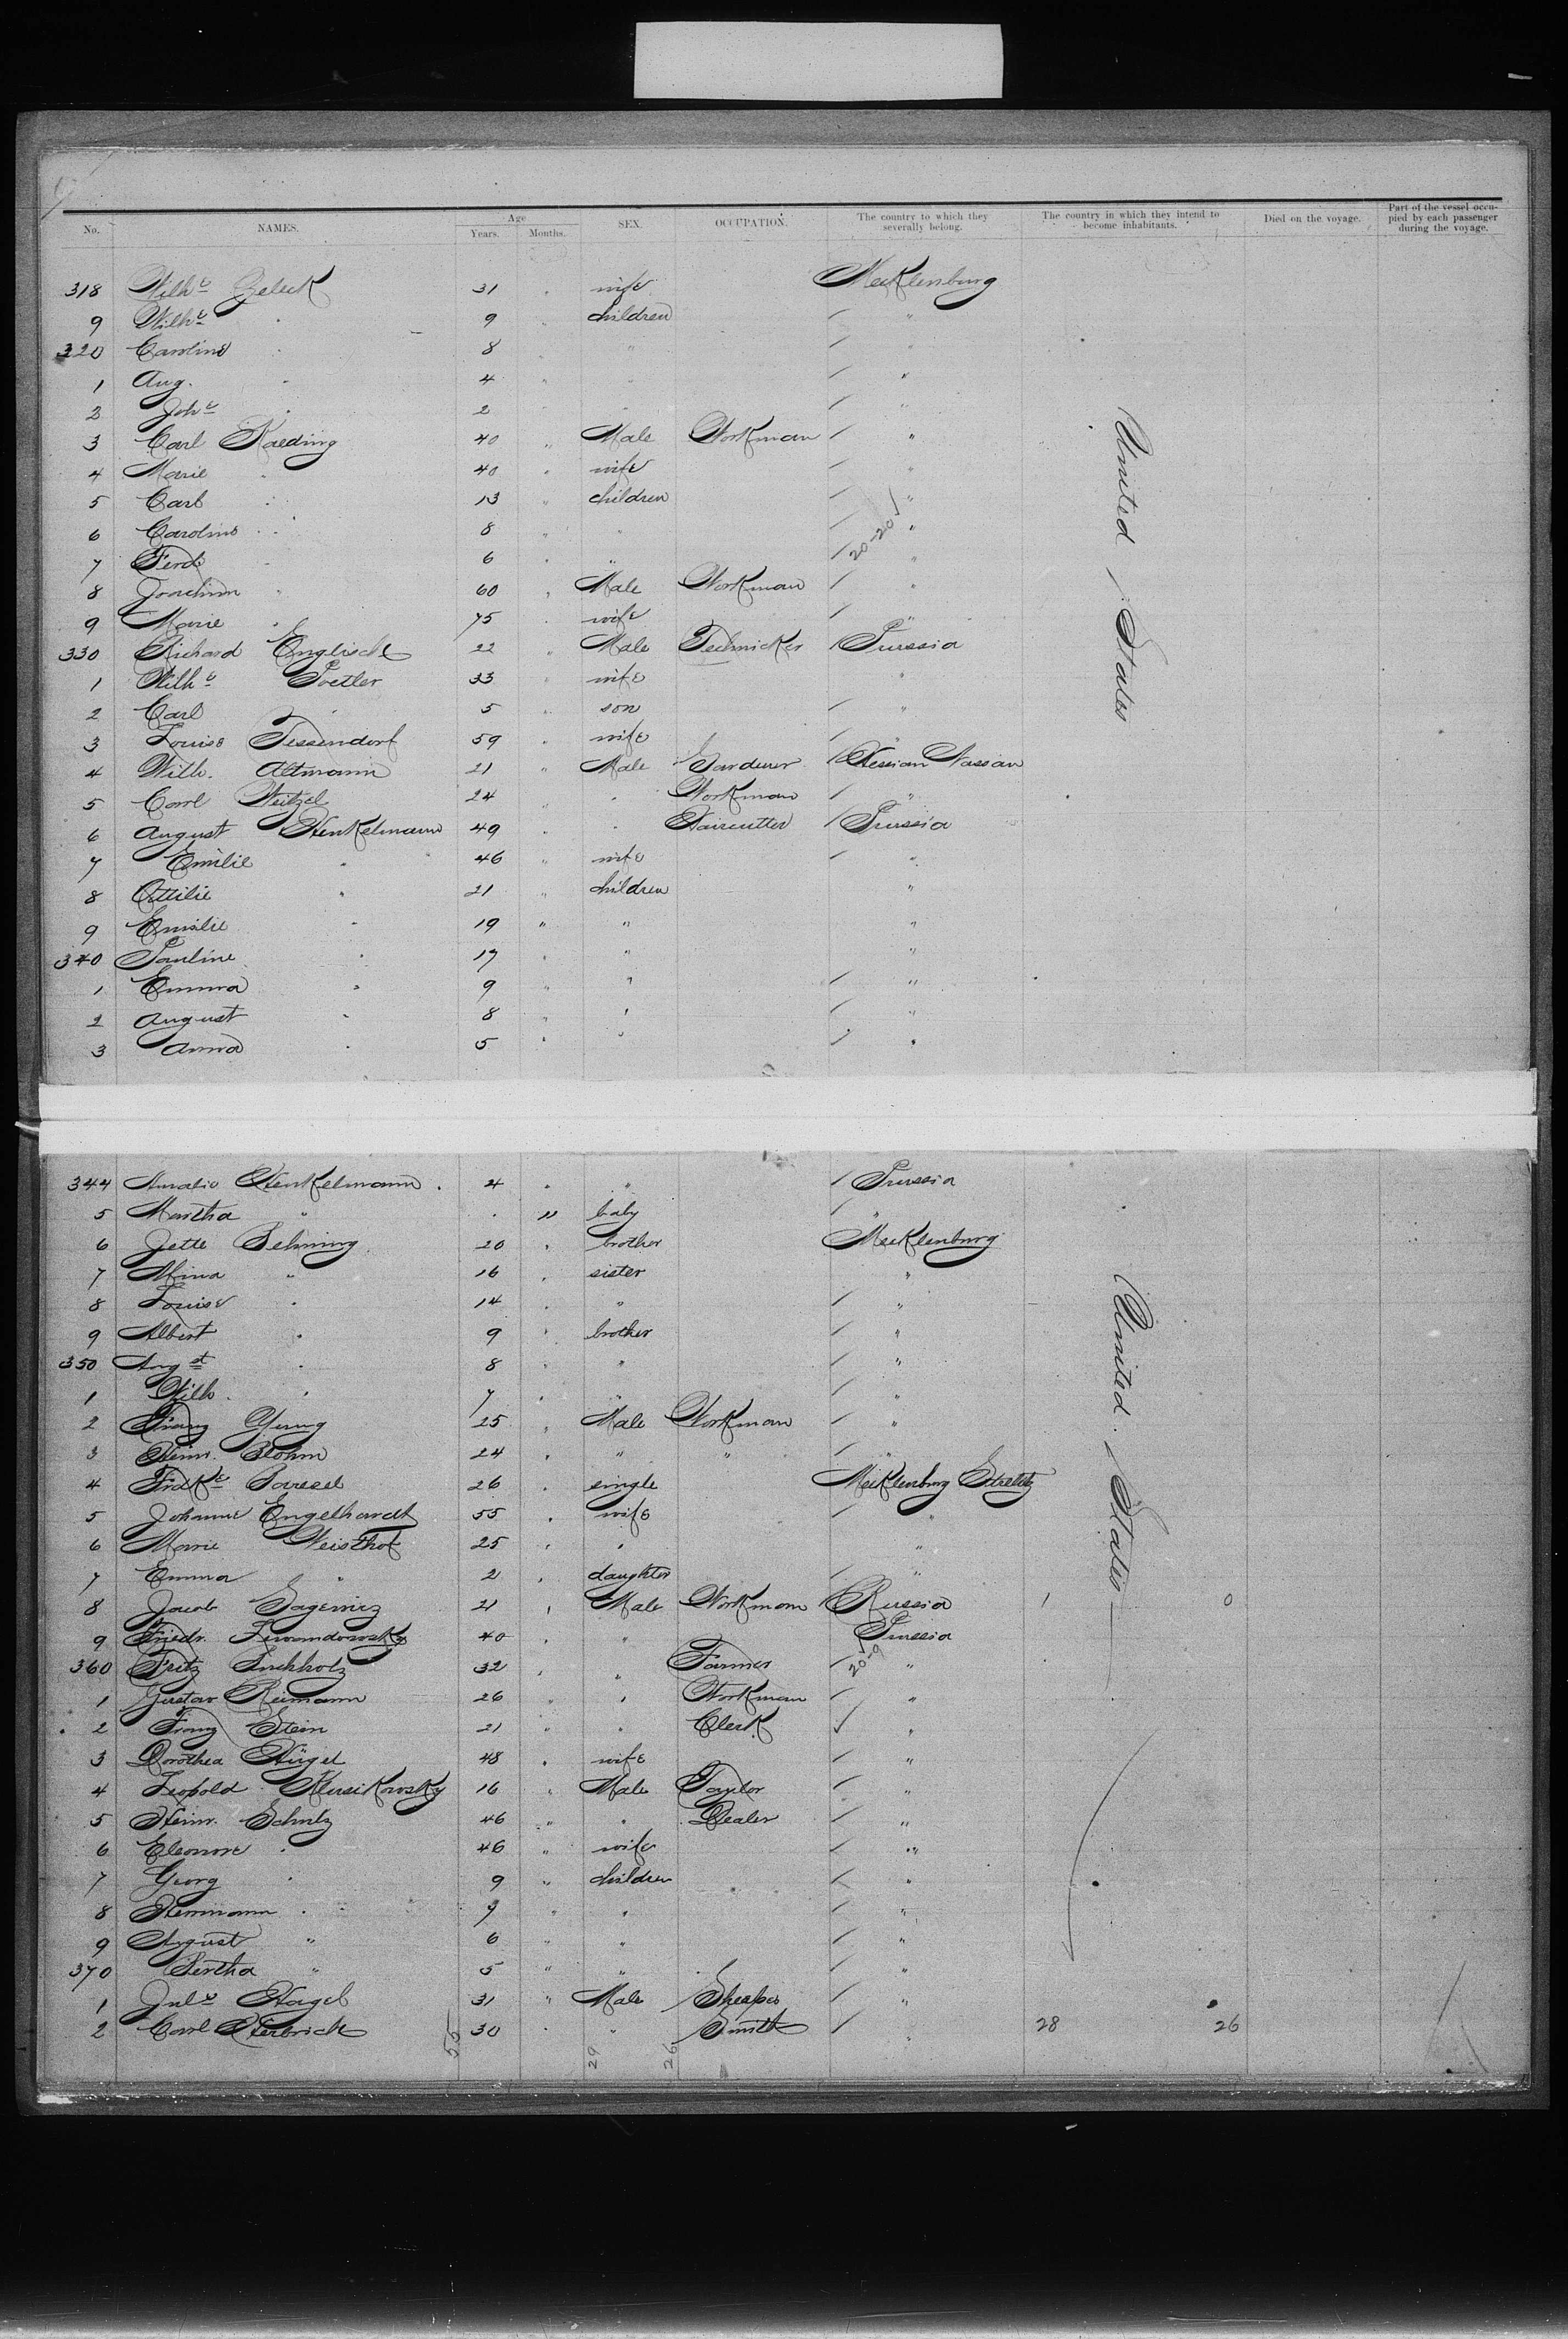 No. NAMES. Age Years. Months. SEX. OCCUPATION. The country to which they severally belong. The country in which they intend to become inhabitants. Died on the voyage. Part of the vessel occupied by each passenger during the voyage.
318 Wilhe Zeleck 31 " wife Mecklenburg
9 Wilhe " 9 " children / "
320 Caroline " 8 " " / "
1 Aug. " 4 " " / "
2 Johe " 2 " " / "
3 Carl Raeding 40 " Male Workman / "
4 Marie " 40 " wife / "
5 Carl " 13 " children / "
6 Caroline " 8 " " / "
7 Ferd. " 6 " " / 20-20/ "
8 Joachim " 60 " Male Workman / "
9 Marie " 75 " wife / "
United States
330 Richard Englisch 22 " Male Technicker / Prussia
1 Wilhe Poetter 33 " wife "
2 Carl " 5 " son / "
3 Louise Tessendorf 59 " wife / "
4 Wilh. Altmann 21 " Male Garderer / Hessian Nassau
5 Carl Weitzel 24 " " Workman / "
6 August Henkelmann 49 " " Haircutter / Prussia
7 Emilie " 46 " wife / "
8 Ottilie " 21 " children "
9 Emilie " 19 " " "
340 Pauline " 17 " " "
1 Emma " 9 " " / "
2 August " 8 " " / "
3 Anna " 5 " " / "
344 Amalie Henkelmann. 4 " " / Prussia
5 Martha " . 11 baby / "
6 Jette Behning 20 " brother Mecklenburg
7 Mina " 16 " sister "
8 Louise " 14 " " / "
9 Albert " 9 " brother / "
350 Augst " 8 " " / "
1 Wilh. " 7 " " / "
2 Franz Yung 25 " Male Workman / "
3 Heinr. Blohm 24 " " " / "
4 Frdke 26 " single Mecklenburg Strelitz
5 Johanne Engelhardt 55 " wife / "
6 Marie Weisthof 25 " " "
7 Emma " 2 " daughter / "
United States
8 Jacob 21 " Male Workman / Russia 1 0
9 Friedr. Lewandowsky 40 " " Prussia
360 Fritz Buchholz 32 " " Farmer / 20-9 "
1 Gustav Reimann 26 " " Workman / "
2 Franz Stein 21 " " Clerk / "
3 Dorothea Hügel 48 " wife / "
4 Leopold 16 " Male Taylor / "
5 Heinr. Schulz 46 " " Dealer / "
6 Eleonore " 46 " wife / "
7 Georg " 9 " children / "
8 Hermann " 7 " " / "
9 August " 6 " " / "
370 Bertha " 5 " " / "
1 Jule Hagel 31 " Male / "
2 Carl 30 " " Smith / " 28 26
55 29 26